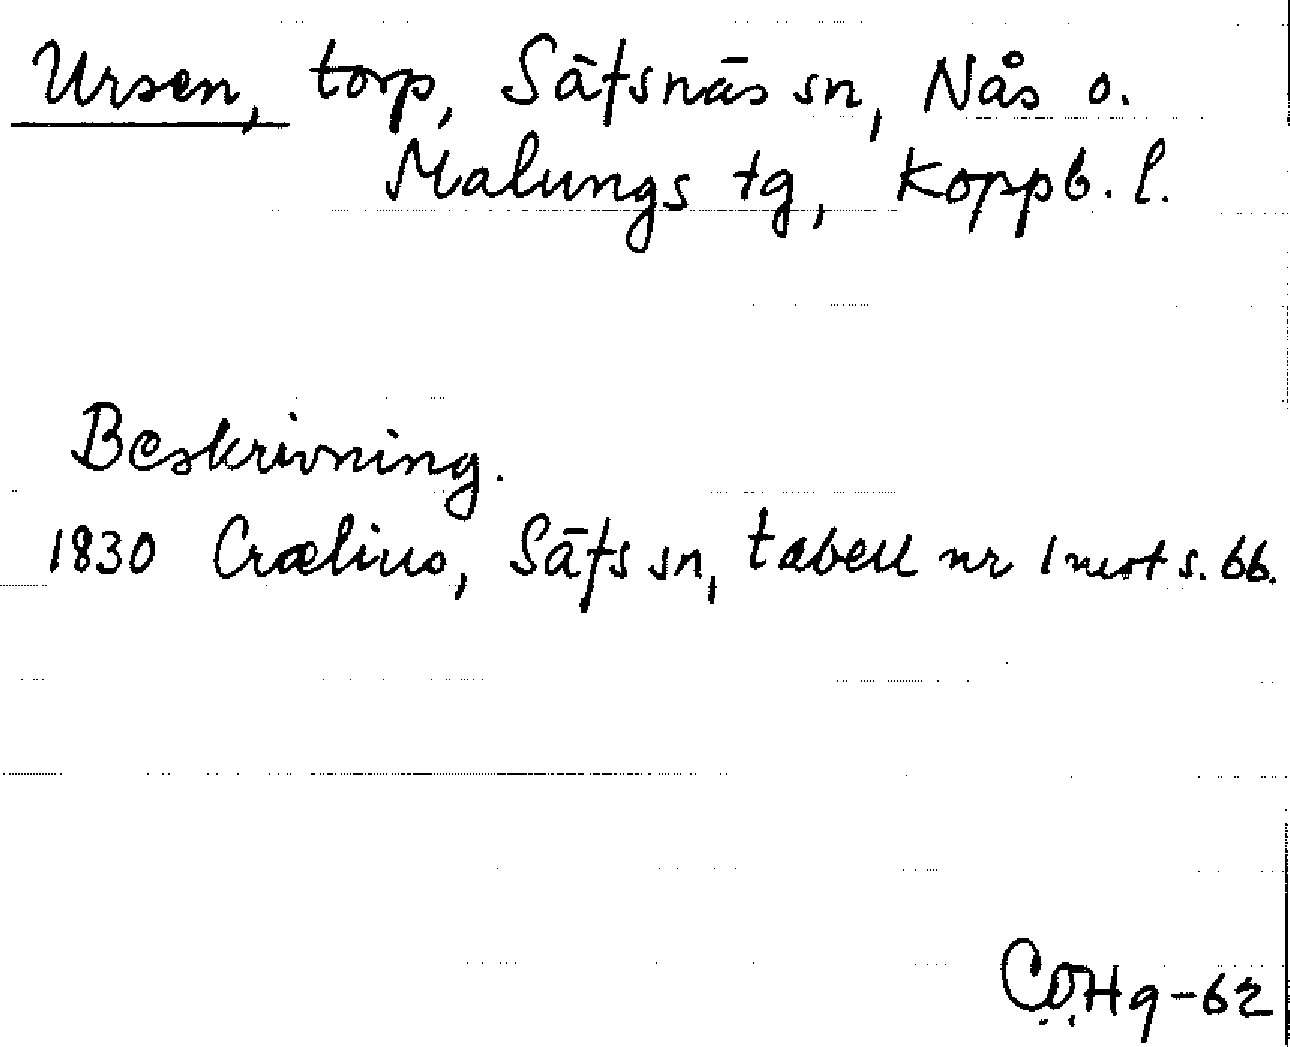 Ursen, torp, Säfsnäs sn, Nås o.
Malungs tg, Koppb. l.
Beskrivning.
1830 Crælius, Säfs sn, tabell nr 1 mot s. 66.
CÖHg-62